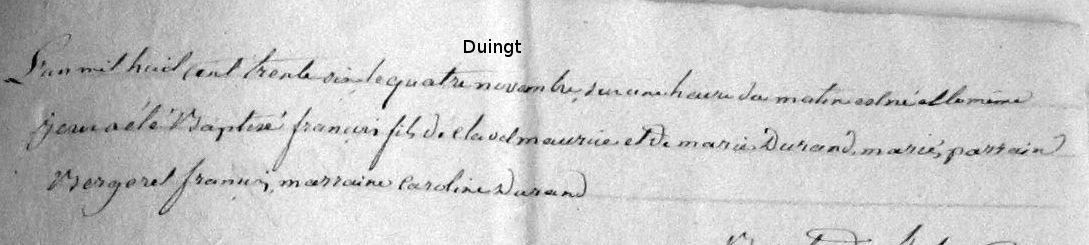 Duingt
L'an mil huit cent trente six le quatre novembre sur une heure du matin est né et le même
jour a été Baptisé françois fils de Claud maurice et de marie Durand, mariés, parrain
Bergeret françois, marraine Caroline Durand